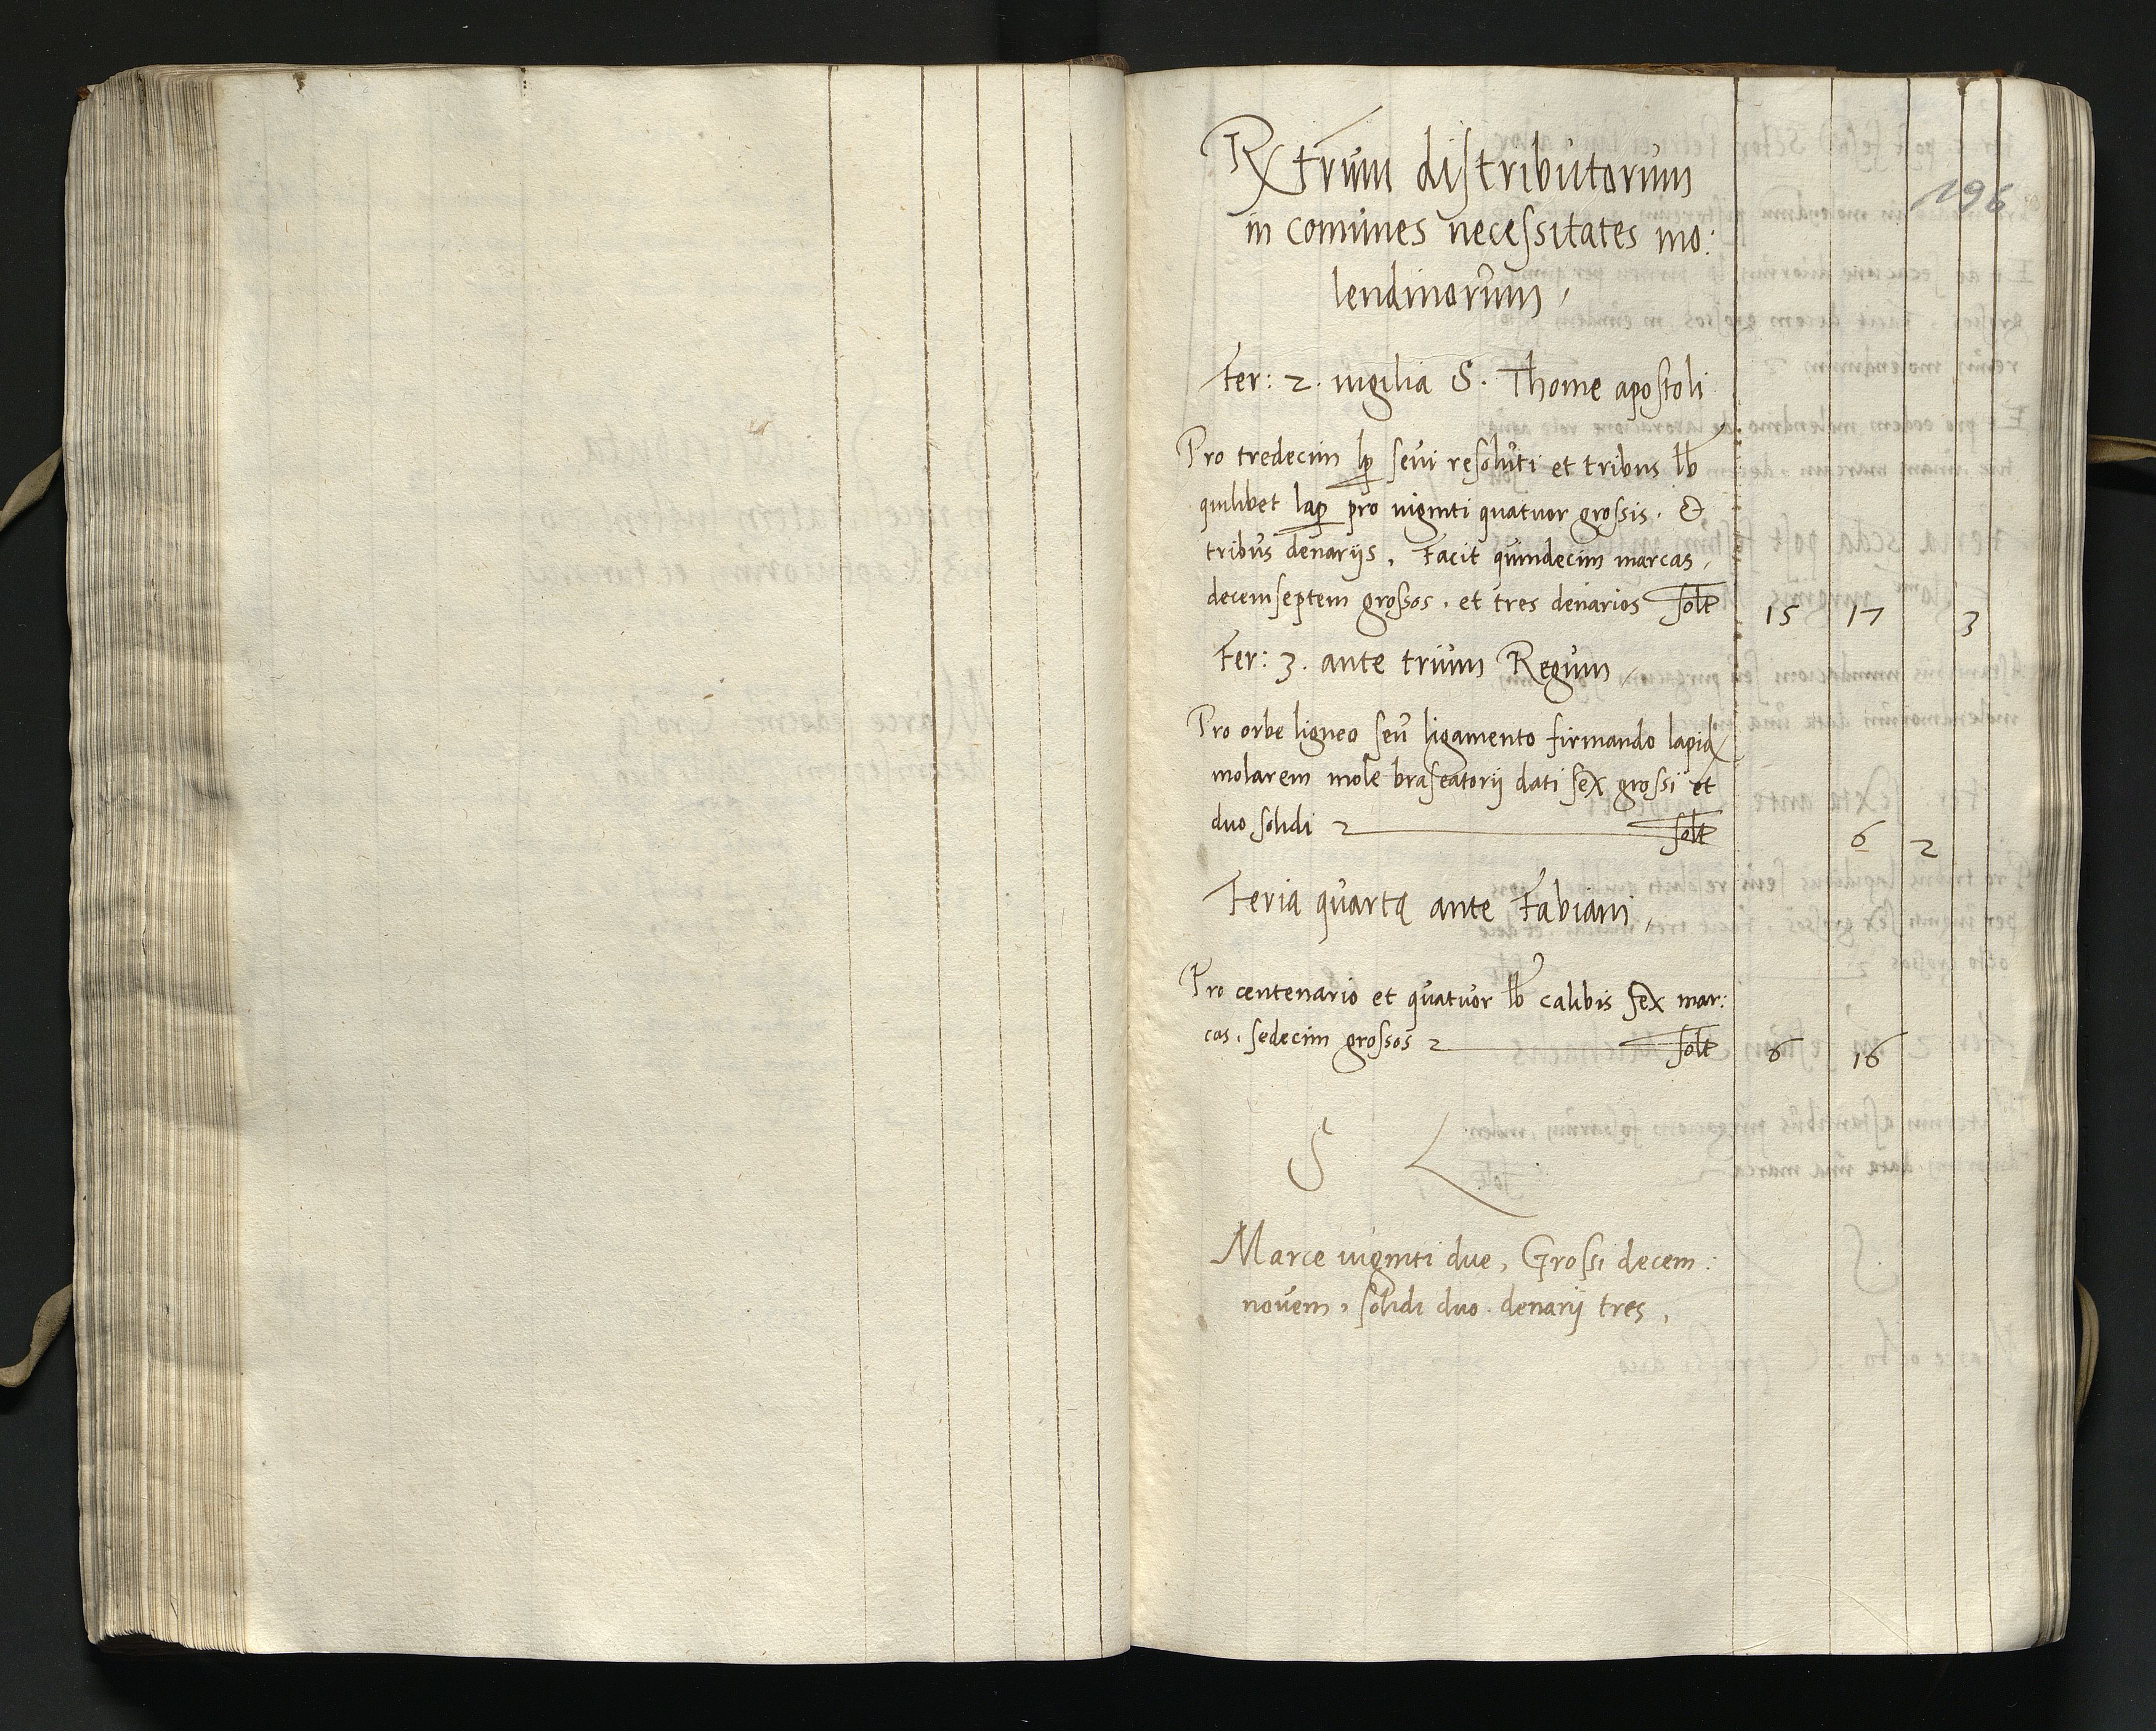 196
Rxtrum distributorum
in comunes necessitates mo:
lendinorum,
Fer: 2. vigilia S. Thome apostoli
Pro tredecim lp sevi resoluti et tribus lb
quilibet lap pro viginti quatuor grossis. &
tribus denarijs. Facit quindecim marcas,
decemseptem grossos. et tres denarios solt 15 17 3
Fer: 3. ante trium Regum,
Pro orbe ligneo seu ligamento firmando lapid
molarem mole braseatorij dati sex grossi et
duo solidi solt 6 2
Feria quarta ante Fabiani,
Pro centenario et quatuor lb calibis sex mar:
cas. sedecim grossos solt 6 16
S L
Marce viginti due, Grossi decem:
novem, solidi duo. denarij tres,